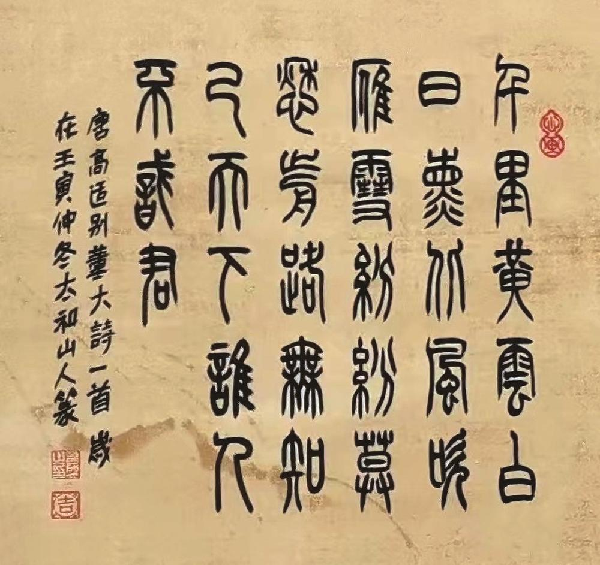 千里黄雲白
日熏北風吹
雁雪紛紛莫
愁前路無知
己天下誰人
不識君
唐高适別董大詩一首歲
在壬寅仲冬太和山人篆